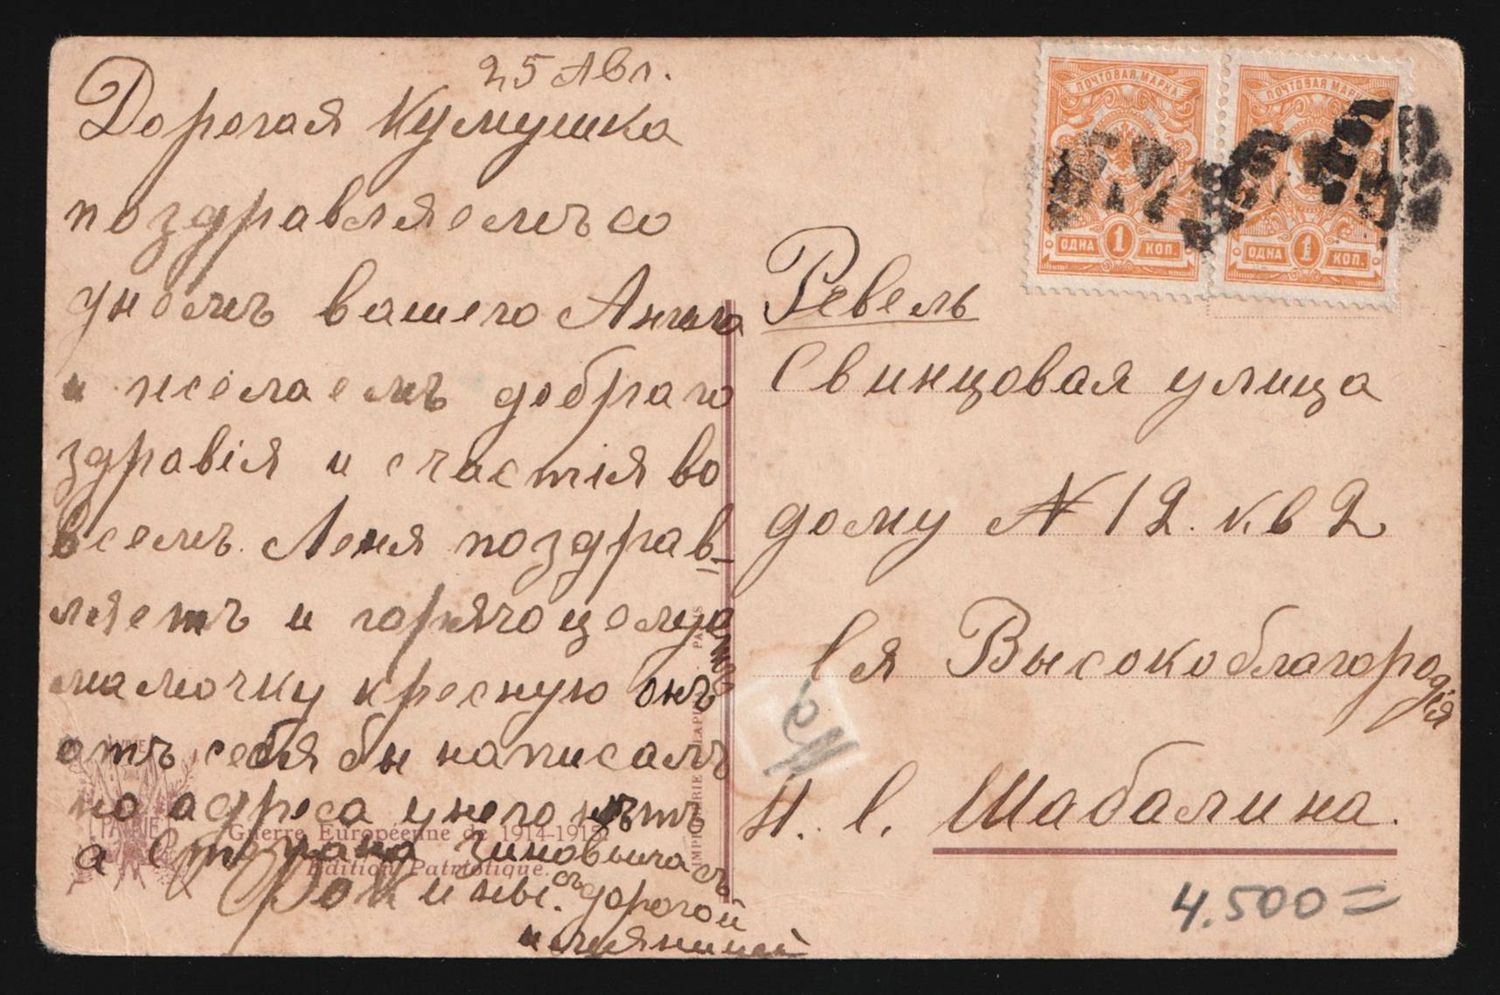 25 Авг.
Дорогая Кумушка
поздравляемъ со
днемъ вашего Ангела
и желаемъ добраго
здравія и счастія во
всемъ. Леня поздрав-
ляетъ и горячо целую
мамочку кресную онъ
отъ себя бы написалъ
но адреса у него нѣтъ
а Степана Зиновьича съ
съ дорогой
имянинницей
Guerre Européenne de 1914-1915
Edition Patriotique.
PATRIE
IMPRIMERIE LAPINA - PARIS
ПОЧТОВАЯ МАРКА
ОДНА 1 КОП.
ПОЧТОВАЯ МАРКА
ОДНА 1 КОП.
Ревель
Свинцовая улица
дому № 12. кв 2
Ея Высокоблагородія
Н. С. Шабалина.
4.500=